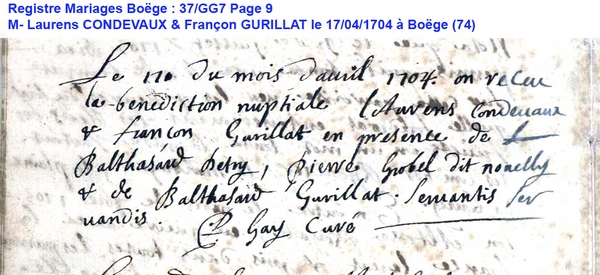 Registre Mariages Boëge : 37/GG7 Page 9
M- Laurens CONDEVAUX & Françon GURILLAT le 17/04/1704 à Boëge (74)
Le 17e du mois d'auril 1704. on receu
la benediction nuptiale laurens condeuaux
& françon Gurillat en presence de
Balthasard Detry, pierre Grobel dit nouelly
& de Balthasard Gurillat. seruantis ser
uandis
Gay Curé